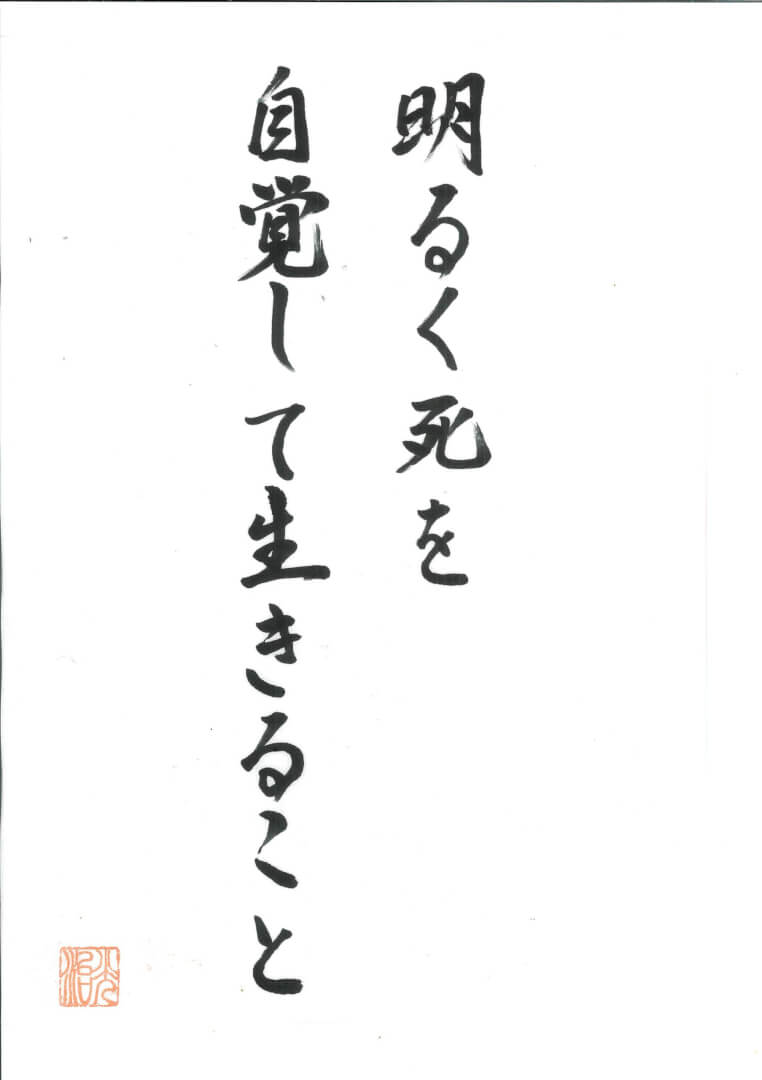 明るく死を
自覚して生きること